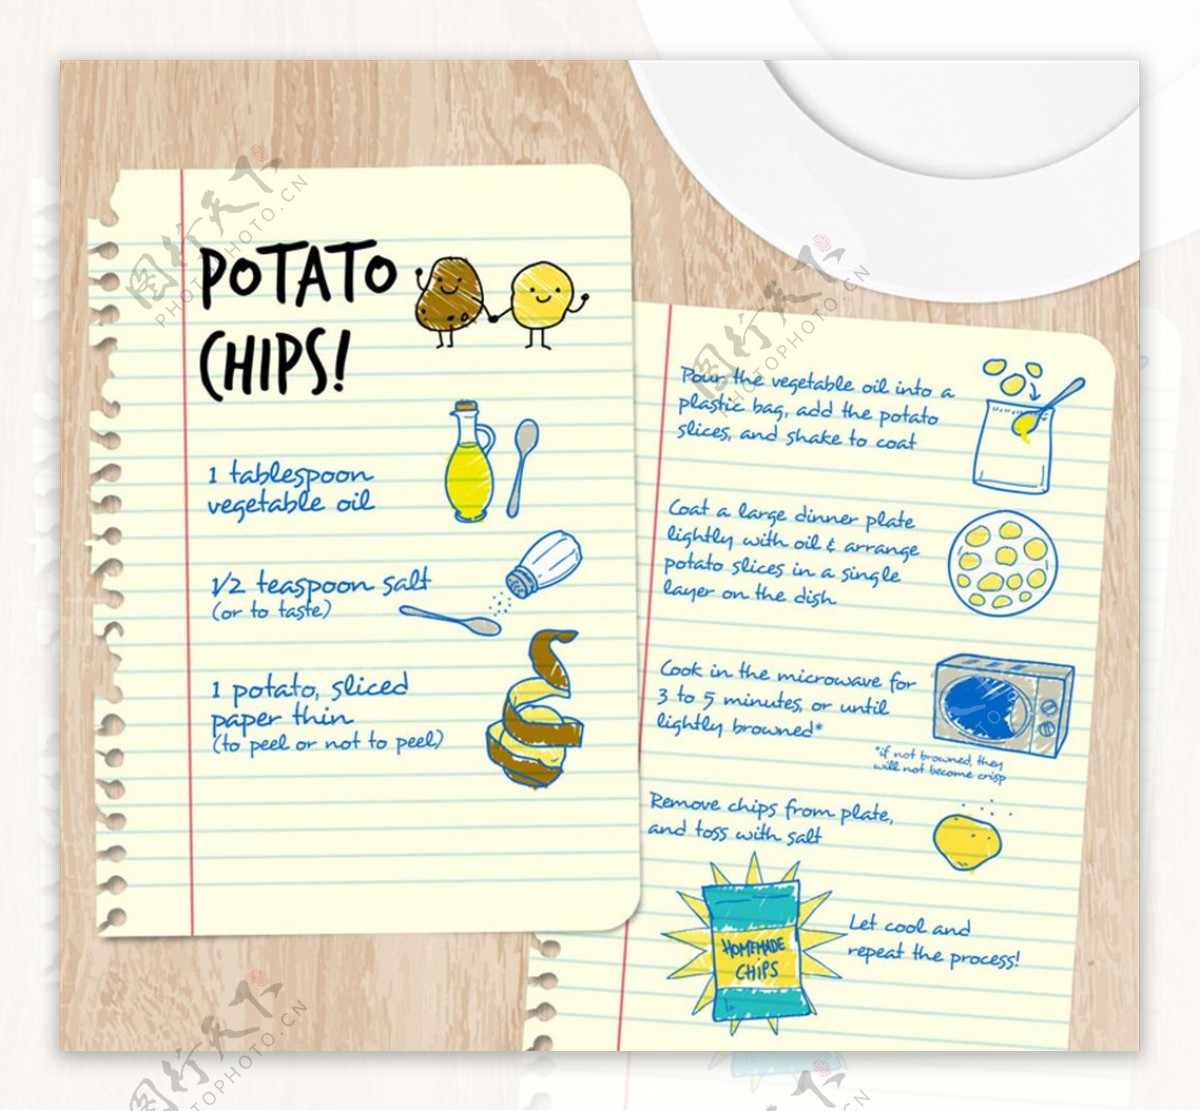 POTATO
CHIPS!
1 tablespoon
vegetable oil
1/2 teaspoon salt
(or to taste)
1 potato, sliced
paper thin
(to peel or not to peel)
Pour the vegetable oil into a
plastic bag, add the potato
slices, and shake to coat
Coat a large dinner plate
lightly with oil & arrange
potato slices in a single
layer on the dish
Cook in the microwave for
3 to 5 minutes, or until
lightly browned*
*if not browned, they
will not become crisp
Remove chips from plate,
and toss with salt
HOMEMADE
CHIPS
Let cool and
repeat the process!
图行天下
PHOTO.CN
图行天下
PHOTOPHOTO.CN
图行天下
PHOTOPHOTO.CN